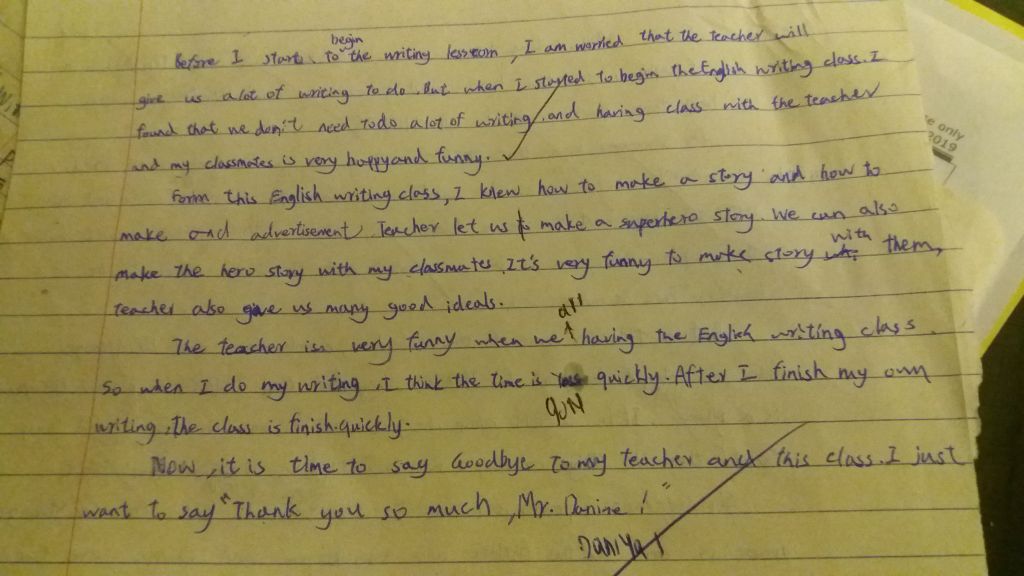 Before I start to begin the writing lesson, I am worried that the teacher will
give us a lot of writing to do. But when I started to begin the English writing class. I
found that we don't need to do a lot of writing, and having class with the teacher
and my classmates is very happy and funny.
Form this English writing class, I knew how to make a story and how to
make and advertisement. Teacher let us to make a superhero story. We can also
make the hero story with my classmates. It's very funny to make story with them,
teacher also gave us many good ideals.
The teacher is very funny when we all having the English writing class.
So when I do my writing, I think the time is quickly. After I finish my own
writing, the class is finish quickly.
Now, it is time to say Goodbye to my teacher and this class. I just
want to say "Thank you so much, Mr. Danine!"
e only
2019